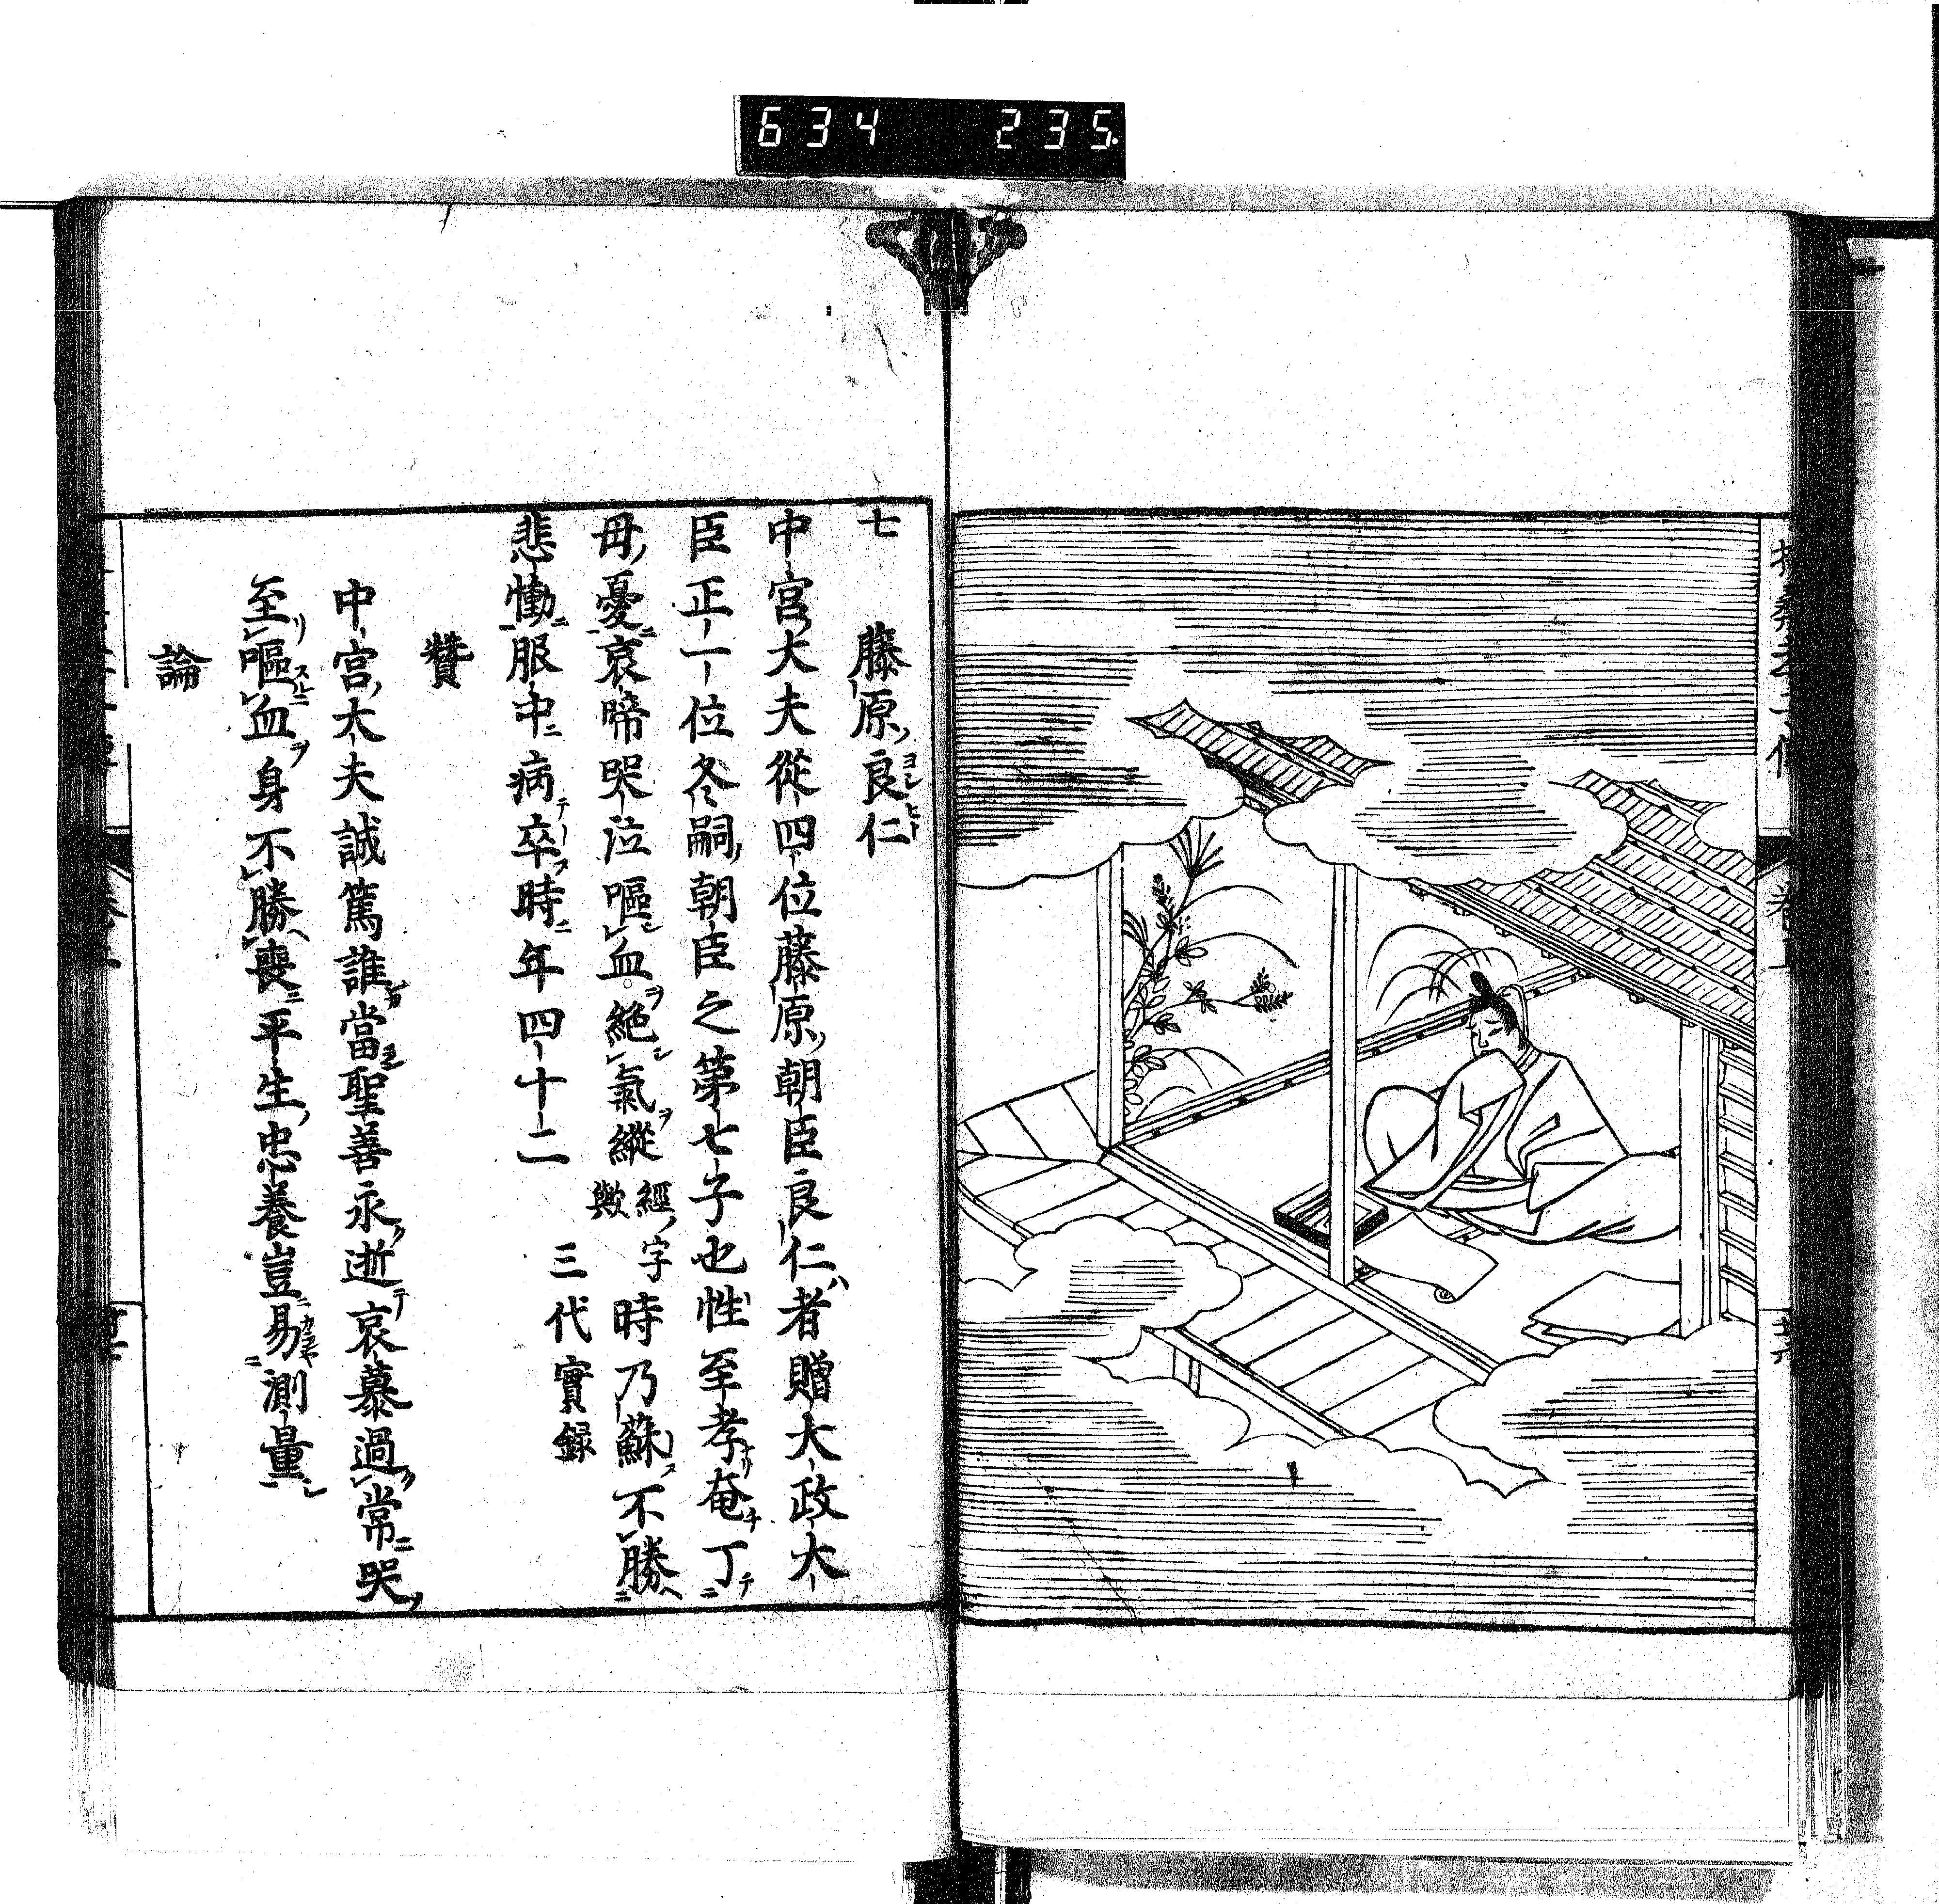 634 235
七 藤原良仁
中宮大夫從四位藤原朝臣良仁者贈大政大
臣正一位冬嗣朝臣之第七子也性至孝奄丁
母憂哀啼哭泣嘔血絶氣縱經字歟時乃蘇不勝
悲慟服中病卒時年四十二 三代實録
贊
中宮大夫誠篤誰當聖善永逝哀慕過常哭
至嘔血身不勝喪平生忠養豈易測量
論